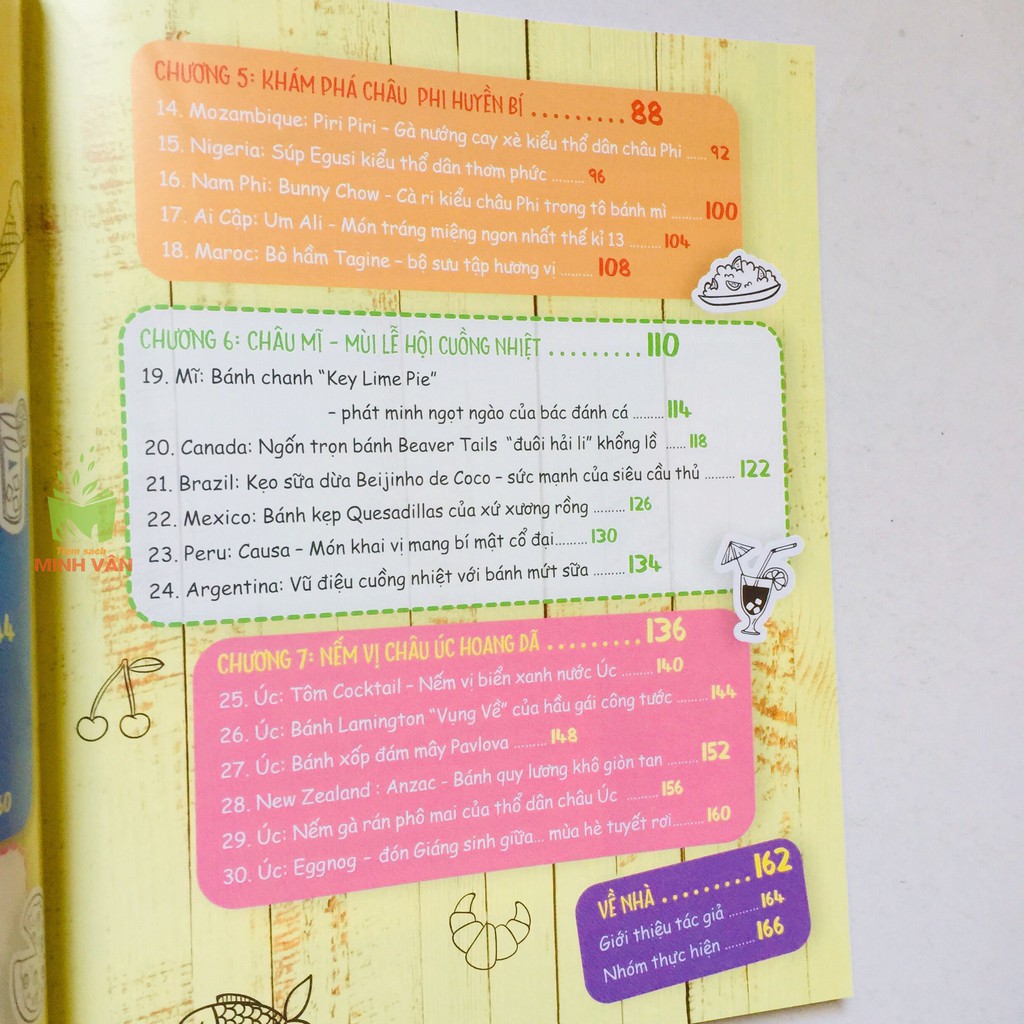 CHƯƠNG 5: KHÁM PHÁ CHÂU PHI HUYỀN BÍ ......... 88
14. Mozambique: Piri Piri - Gà nướng cay xè kiểu thổ dân châu Phi ...... 92
15. Nigeria: Súp Egusi kiểu thổ dân thơm phức ......... 96
16. Nam Phi: Bunny Chow - Cà ri kiểu châu Phi trong tô bánh mì ......... 100
17. Ai Cập: Um Ali - Món tráng miệng ngon nhất thế kỉ 13 ......... 104
18. Maroc: Bò hầm Tagine – bộ sưu tập hương vị ......... 108
CHƯƠNG 6: CHÂU MĨ - MÙI LỄ HỘI CUỒNG NHIỆT ......... 110
19. Mĩ: Bánh chanh “Key Lime Pie”
– phát minh ngọt ngào của bác đánh cá ......... 114
20. Canada: Ngốn trọn bánh Beaver Tails “đuôi hải li” khổng lồ ...... 118
21. Brazil: Kẹo sữa dừa Beijinho de Coco – sức mạnh của siêu cầu thủ ......... 122
22. Mexico: Bánh kẹp Quesadillas của xứ xương rồng ......... 126
23. Peru: Causa – Món khai vị mang bí mật cổ đại......... 130
24. Argentina: Vũ điệu cuồng nhiệt với bánh mứt sữa ......... 134
CHƯƠNG 7: NẾM VỊ CHÂU ÚC HOANG DÃ ......... 136
25. Úc: Tôm Cocktail - Nếm vị biển xanh nước Úc ......... 140
26. Úc: Bánh Lamington “Vụng Về” của hầu gái công tước ......... 144
27. Úc: Bánh xốp đám mây Pavlova ......... 148
28. New Zealand : Anzac - Bánh quy lương khô giòn tan ......... 152
29. Úc: Nếm gà rán phô mai của thổ dân châu Úc ......... 156
30. Úc: Eggnog – đón Giáng sinh giữa... mùa hè tuyết rơi......... 160
VỀ NHÀ ......... 162
Giới thiệu tác giả ......... 164
Nhóm thực hiện ......... 166
Tiệm sách
MINH VÂN